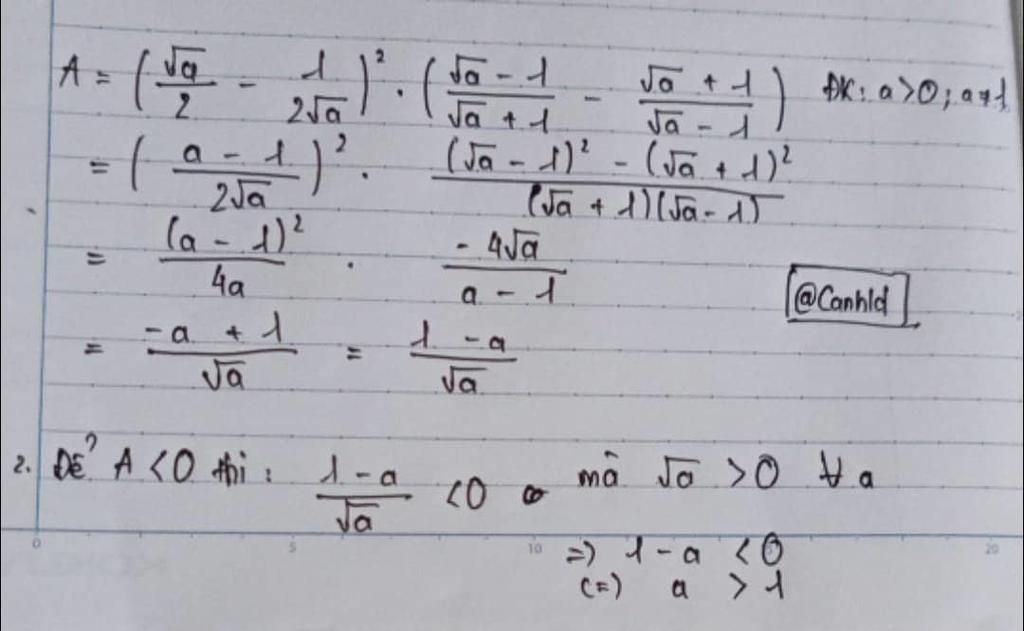 A = (√a/2 - 1/2√a)² . (√a - 1/√a + 1 - √a + 1/√a - 1) ĐK: a>0; a≠1
= (a - 1/2√a)² . (√a - 1)² - (√a + 1)²/(√a + 1)(√a - 1)
= (a - 1)²/4a . -4√a/a - 1
@Canhld
= -a + 1/√a = 1 - a/√a
2. Để A <0 thì: 1 - a/√a <0 mà √a >0 ∀ a
0 5 10 20
=> 1 - a <0
<=> a > 1